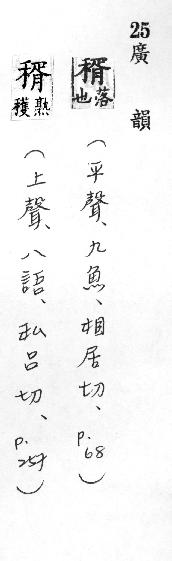 25廣韻
稰落也(平聲、九魚、相居切、p.68)
稰熟穫(上聲、八語、私呂切、p.257)